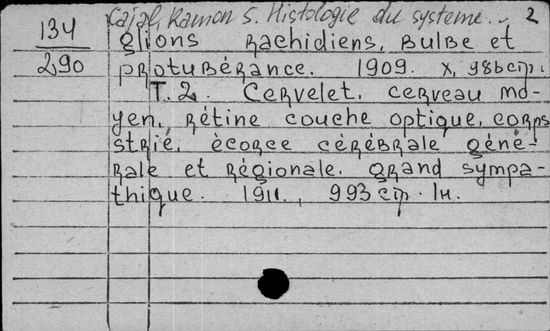 Cajal, Ramon S. Histologie du systeme... 2
134
290
glions rachidiens, bulbe et
protubérance. 1909. X, 986 стр.
T. 2. Cervelet, cerveau mo-
yen, rétine couche optique, corps
strié, écorce cérébrale géné-
rale et régionale, grand sympa-
thique. 1911., 993 стр. 1н.